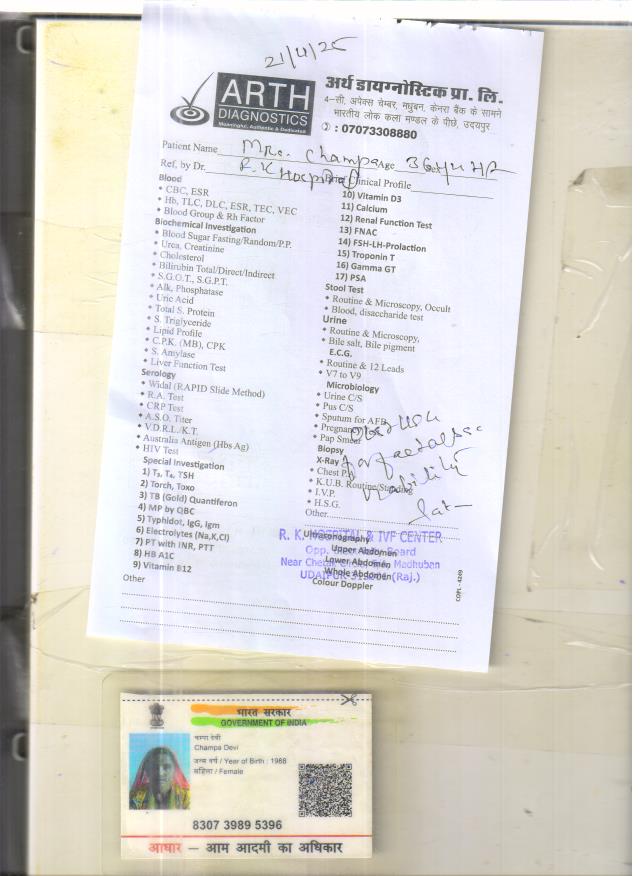 21/4/25
ARTH
DIAGNOSTICS
Meaningful, Authentic & Dedicated
अर्थ डायग्नोस्टिक प्रा. लि.
4-सी, अपेक्स चेम्बर, मधुबन, केनरा बैंक के सामने
भारतीय लोक कला मण्डल के पीछे, उदयपुर
: 07073308880
Patient Name Mrs. Champa Age 36y
Ref, by Dr. R.K Hospital Brief Clinical Profile
Blood
• CBC, ESR
• Hb, TLC, DLC, ESR, TEC, VEC
• Blood Group & Rh Factor
Biochemical Investigation
• Blood Sugar Fasting/Random/P.P.
• Urea, Creatinine
• Cholesterol
• Bilirubin Total/Direct/Indirect
• S.G.O.T., S.G.P.T.
• Alk, Phosphatase
• Uric Acid
• Total S. Protein
• S. Triglyceride
• Lipid Profile
• C.P.K. (MB), CPK
• S. Amylase
• Liver Function Test
Serology
• Widal (RAPID Slide Method)
• R.A. Test
• CRP Test
• A.S.O. Titer
• V.D.R.L./K.T.
• Australia Antigen (Hbs Ag)
• HIV Test
Special Investigation
1) T₃, T₄, TSH
2) Torch, Toxo
3) TB (Gold) Quantiferon
4) MP by QBC
5) Typhidot, IgG, Igm
6) Electrolytes (Na,K,Cl)
7) PT with INR, PTT
8) HB A1C
9) Vitamin B12
Other
10) Vitamin D3
11) Calcium
12) Renal Function Test
13) FNAC
14) FSH-LH-Prolaction
15) Troponin T
16) Gamma GT
17) PSA
Stool Test
• Routine & Microscopy, Occult
• Blood, disaccharide test
Urine
• Routine & Microscopy,
• Bile salt, Bile pigment
E.C.G.
• Routine & 12 Leads
• V7 to V9
Microbiology
• Urine C/S
• Pus C/S
• Sputum for AFB
• Pap Smear
Biopsy
X-Ray
• Chest P.A.
• K.U.B. Routine/Standing
• I.V.P.
• H.S.G.
Other
Ultrasonography
Upper Abdomen
Lower Abdomen
Whole Abdomen
Colour Doppler
R. K. HOSPITAL & IVF CENTER
Madhuban
UDAIPUR (Raj.)
COPL-4209
भारत सरकार
GOVERNMENT OF INDIA
चम्पा देवी
Champa Devi
जन्म वर्ष / Year of Birth : 1988
महिला / Female
8307 3989 5396
आधार — आम आदमी का अधिकार